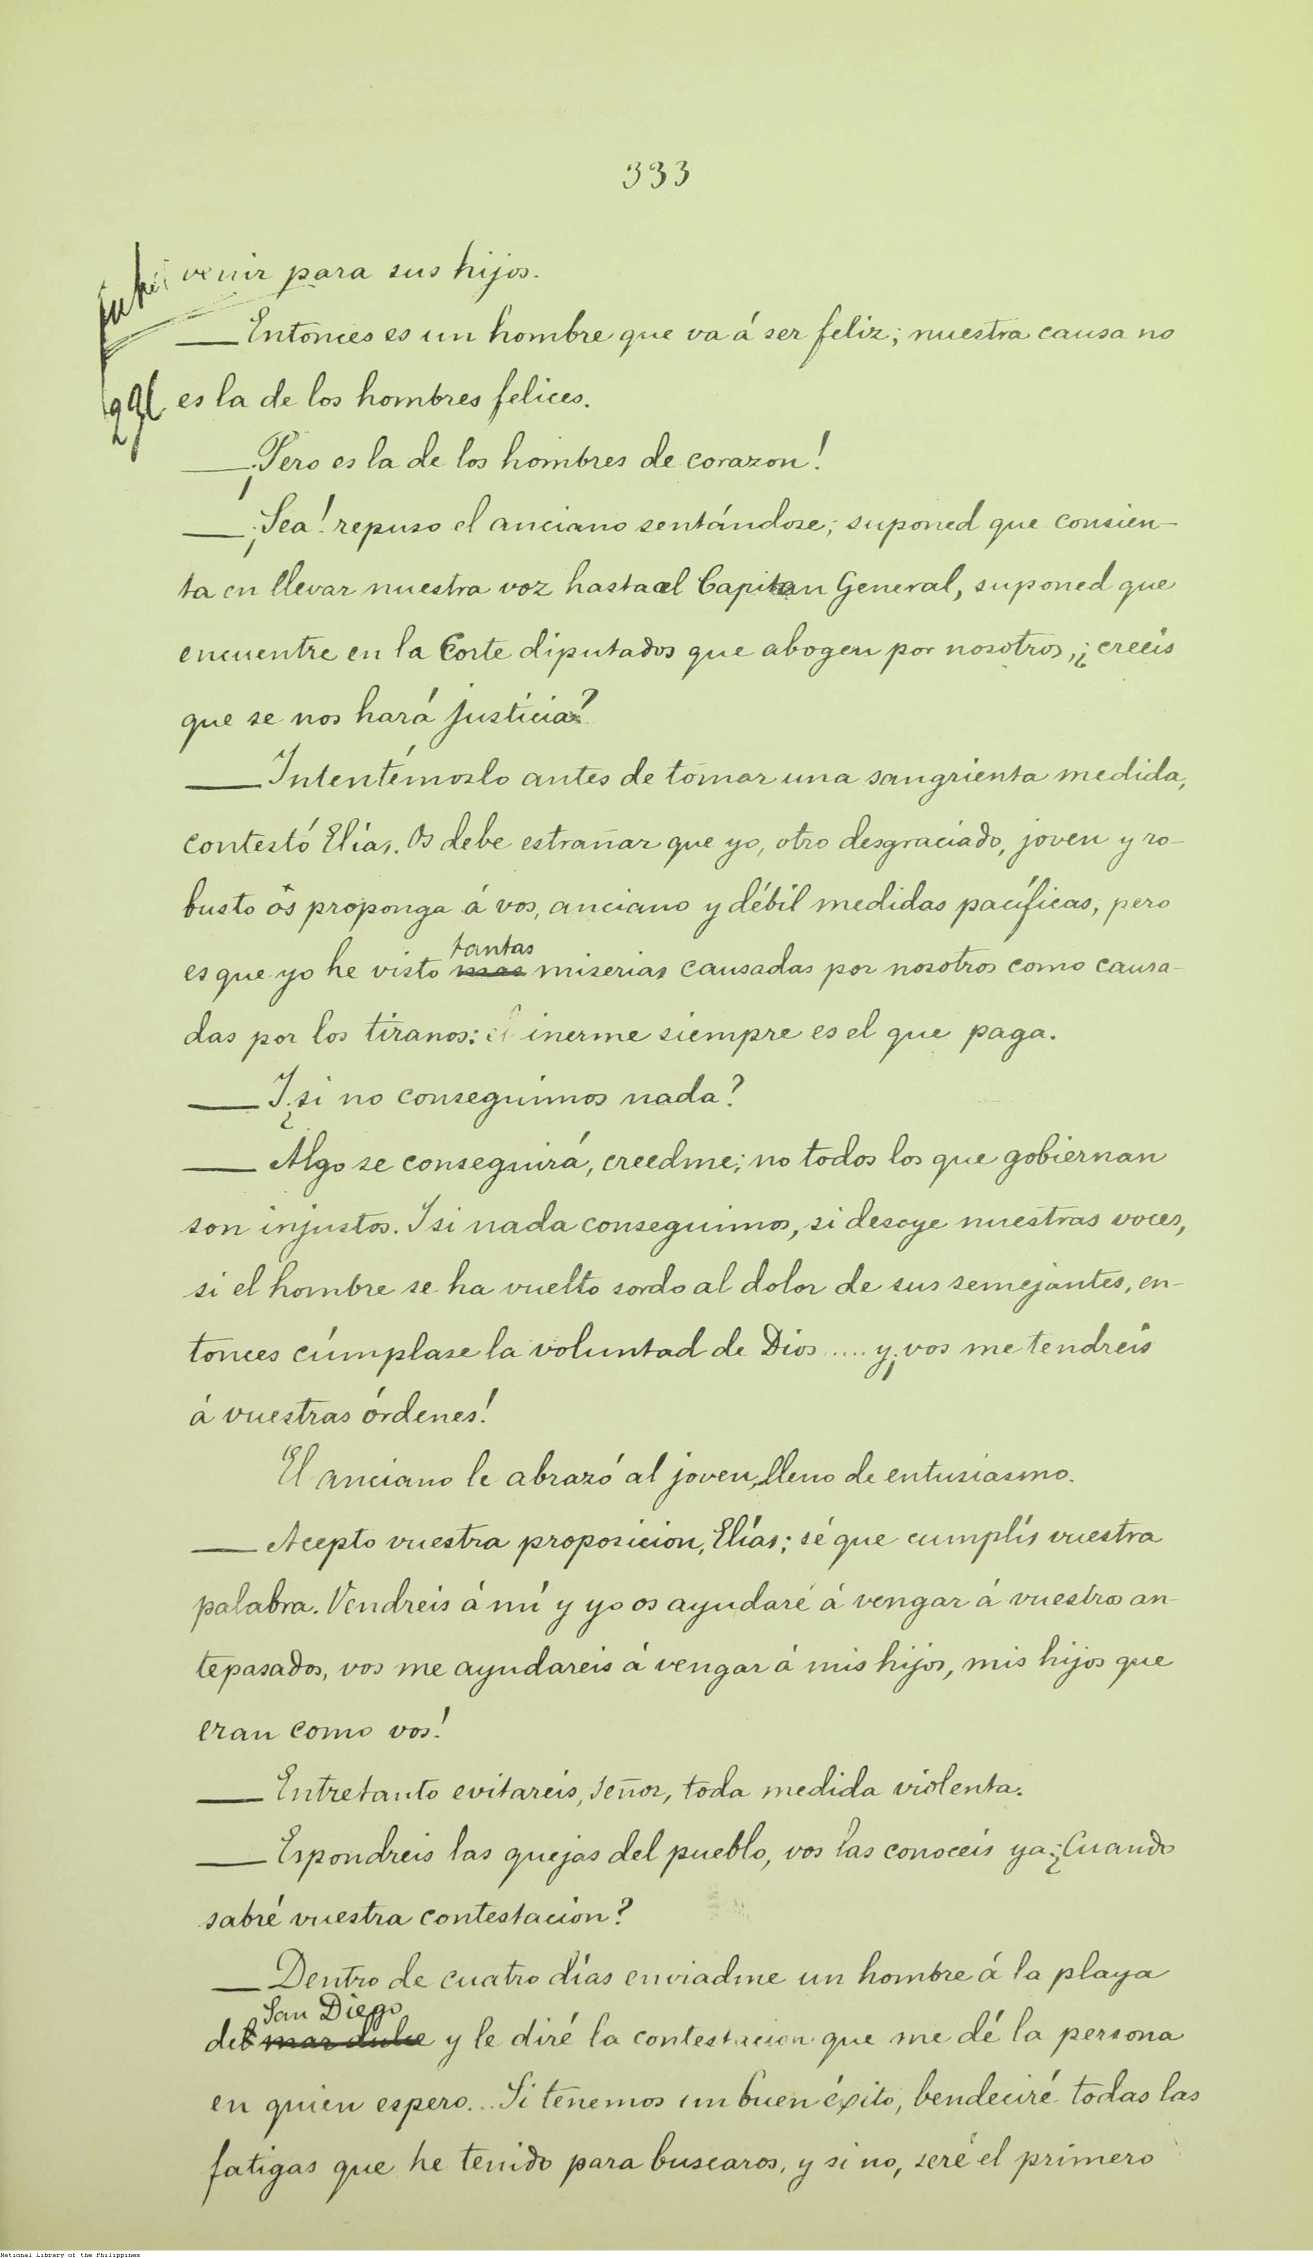 333
venir para sus hijos.
—Entonces es un hombre que va á ser feliz; nuestra causa no
291 es la de los hombres felices.
—¡Pero es la de los hombres de corazon!
—¡Sea! repuso el anciano sentándose; suponed que consien-
ta en llevar nuestra voz hasta el Capitan General, suponed que
encuentre en la Corte diputados que abogen por nosotros, ¿creeis
que se nos hará justicia?
—Intentémoslo antes de tomar una sangrienta medida,
contestó Elías. Os debe estrañar que yo, otro desgraciado, joven y ro-
busto os proponga á vos, anciano y débil medidas pacíficas, pero
tantas
es que yo he visto mas miserias causadas por nosotros como causa-
das por los tiranos: el inerme siempre es el que paga.
—I ¿si no conseguimos nada?
—Algo se conseguirá, creedme; no todos los que gobiernan
son injustos. I si nada conseguimos, si desoye nuestras voces,
si el hombre se ha vuelto sordo al dolor de sus semejantes, en-
tonces cúmplase la voluntad de Dios .... y ¡vos me tendreis
á vuestras órdenes!
El anciano le abrazó al joven, lleno de entusiasmo.
—Acepto vuestra proposicion, Elías; sé que cumplís vuestra
palabra. Vendreis á mí y yo os ayudaré á vengar á vuestros an-
tepasados, vos me ayudareis á vengar á mis hijos, mis hijos que
eran como vos!
—Entretanto evitareis, señor, toda medida violenta.
—Espondreis las quejas del pueblo, vos las conoceis ya. ¿Cuando
sabré vuestra contestacion?
—Dentro de cuatro días enviadme un hombre á la playa
San Diego
del mar dulce y le diré la contestacion que me dé la persona
en quien espero... Si tenemos un buen éxito, bendeciré todas las
fatigas que he tenido para buscaros, y si no, seré el primero
National Library of the Philippines